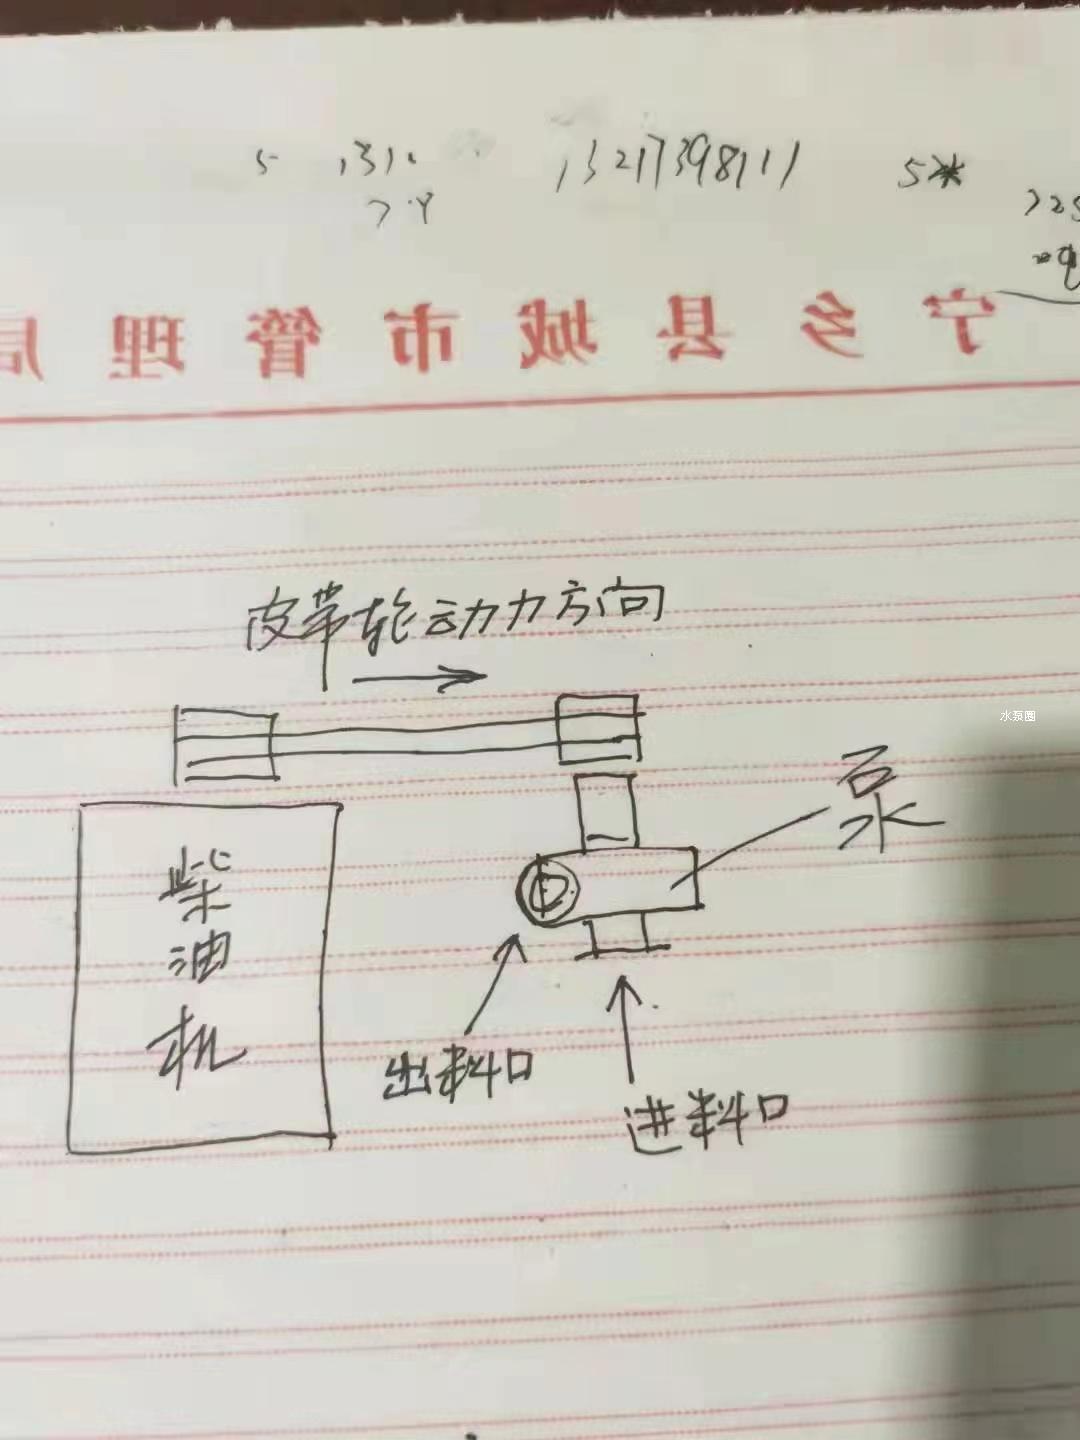 5 131. 13217398111 5
宁乡县城市管理局
皮带轮动力方向
水泵圈
泵
柴油机
出料口
进料口